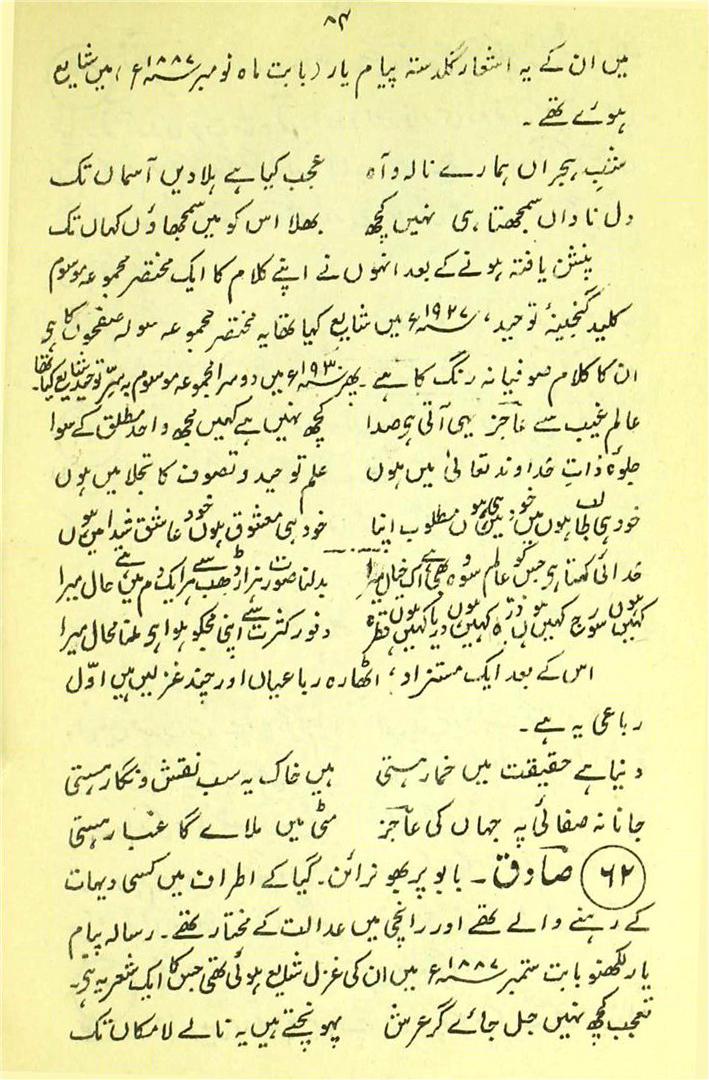 ۸۴
میں ان کے یہ اشعار گلدستہ پیام یار (بابت ماہ نومبر ۱۸۸۷ء) میں شایع
ہوئے تھے ۔
شبِ ہجراں ہمارے نالہ و آہ عجب کیا ہے ہلادیں آسماں تک
دل ناداں سمجھتا ہی نہیں کچھ بھلا اس کو میں سمجھاؤں کہاں تک
پنشن یافتہ ہونے کے بعد انہوں نے اپنے کلام کا ایک مختصر مجموعہ موسوم
کلید گنجینۂ توحید، ۱۹۲۷ء میں شایع کیا تھا یہ مختصر مجموعہ سولہ صفحوں کا ہی
ان کا کلام صوفیانہ رنگ کا ہے ۔ پھر ۱۹۳۰ء میں دوسرا مجموعہ موسوم بہ سرِّ توحید شایع کیا تھا۔
عالم غیب سے عاجز یہی آتی ہی صدا کچھ نہیں ہے کہیں مجھ واحد مطلق کے سوا
جلوہ ذاتِ خداوند تعالیٰ میں ہوں علم توحید و تصوف کا تجلا میں ہوں
خود ہی طالب ہوں میں خود ہی ہوں مطلوب اپنا خود ہی معشوق ہوں خود عاشق شیدا میں ہوں
خدائی کہتا ہی جس کو عالم وہ بھی ہے اک خیال میرا بدلنا صورت ہزار ڈھب سے ہر ایک دم میں ہے حال میرا
کہیں ہوں سورج کہیں ہوں ذرہ کہیں ہوں دریا کہیں ہوں قطرہ وفور کثرت سے اپنی مجکو ہوا ہی ملنا محال میرا
اس کے بعد ایک مستزاد، اٹھارہ رباعیاں اور چند غزلیں ہیں اوّل
رباعی یہ ہے ۔
دنیا ہے حقیقت میں خمار ہستی ہیں خاک یہ سب نقش و نگار ہستی
جانا نہ صفائی پہ جہاں کی عاجز مٹی میں ملاے گا غبار ہستی
۶۲ صادق ۔ بابو پربھو نرائن ۔ گیا کے اطراف میں کسی دیہات
کے رہنے والے تھے اور رانچی میں عدالت کے مختار تھے ۔ رسالہ پیام
یار لکھنو بابت ستمبر ۱۸۸۷ء میں ان کی غزل شایع ہوئی تھی جس کا ایک شعر یہ ہی۔
تعجب کچھ نہیں جل جائے گر عرش پہونچتے ہیں یہ نالے لا مکاں تک